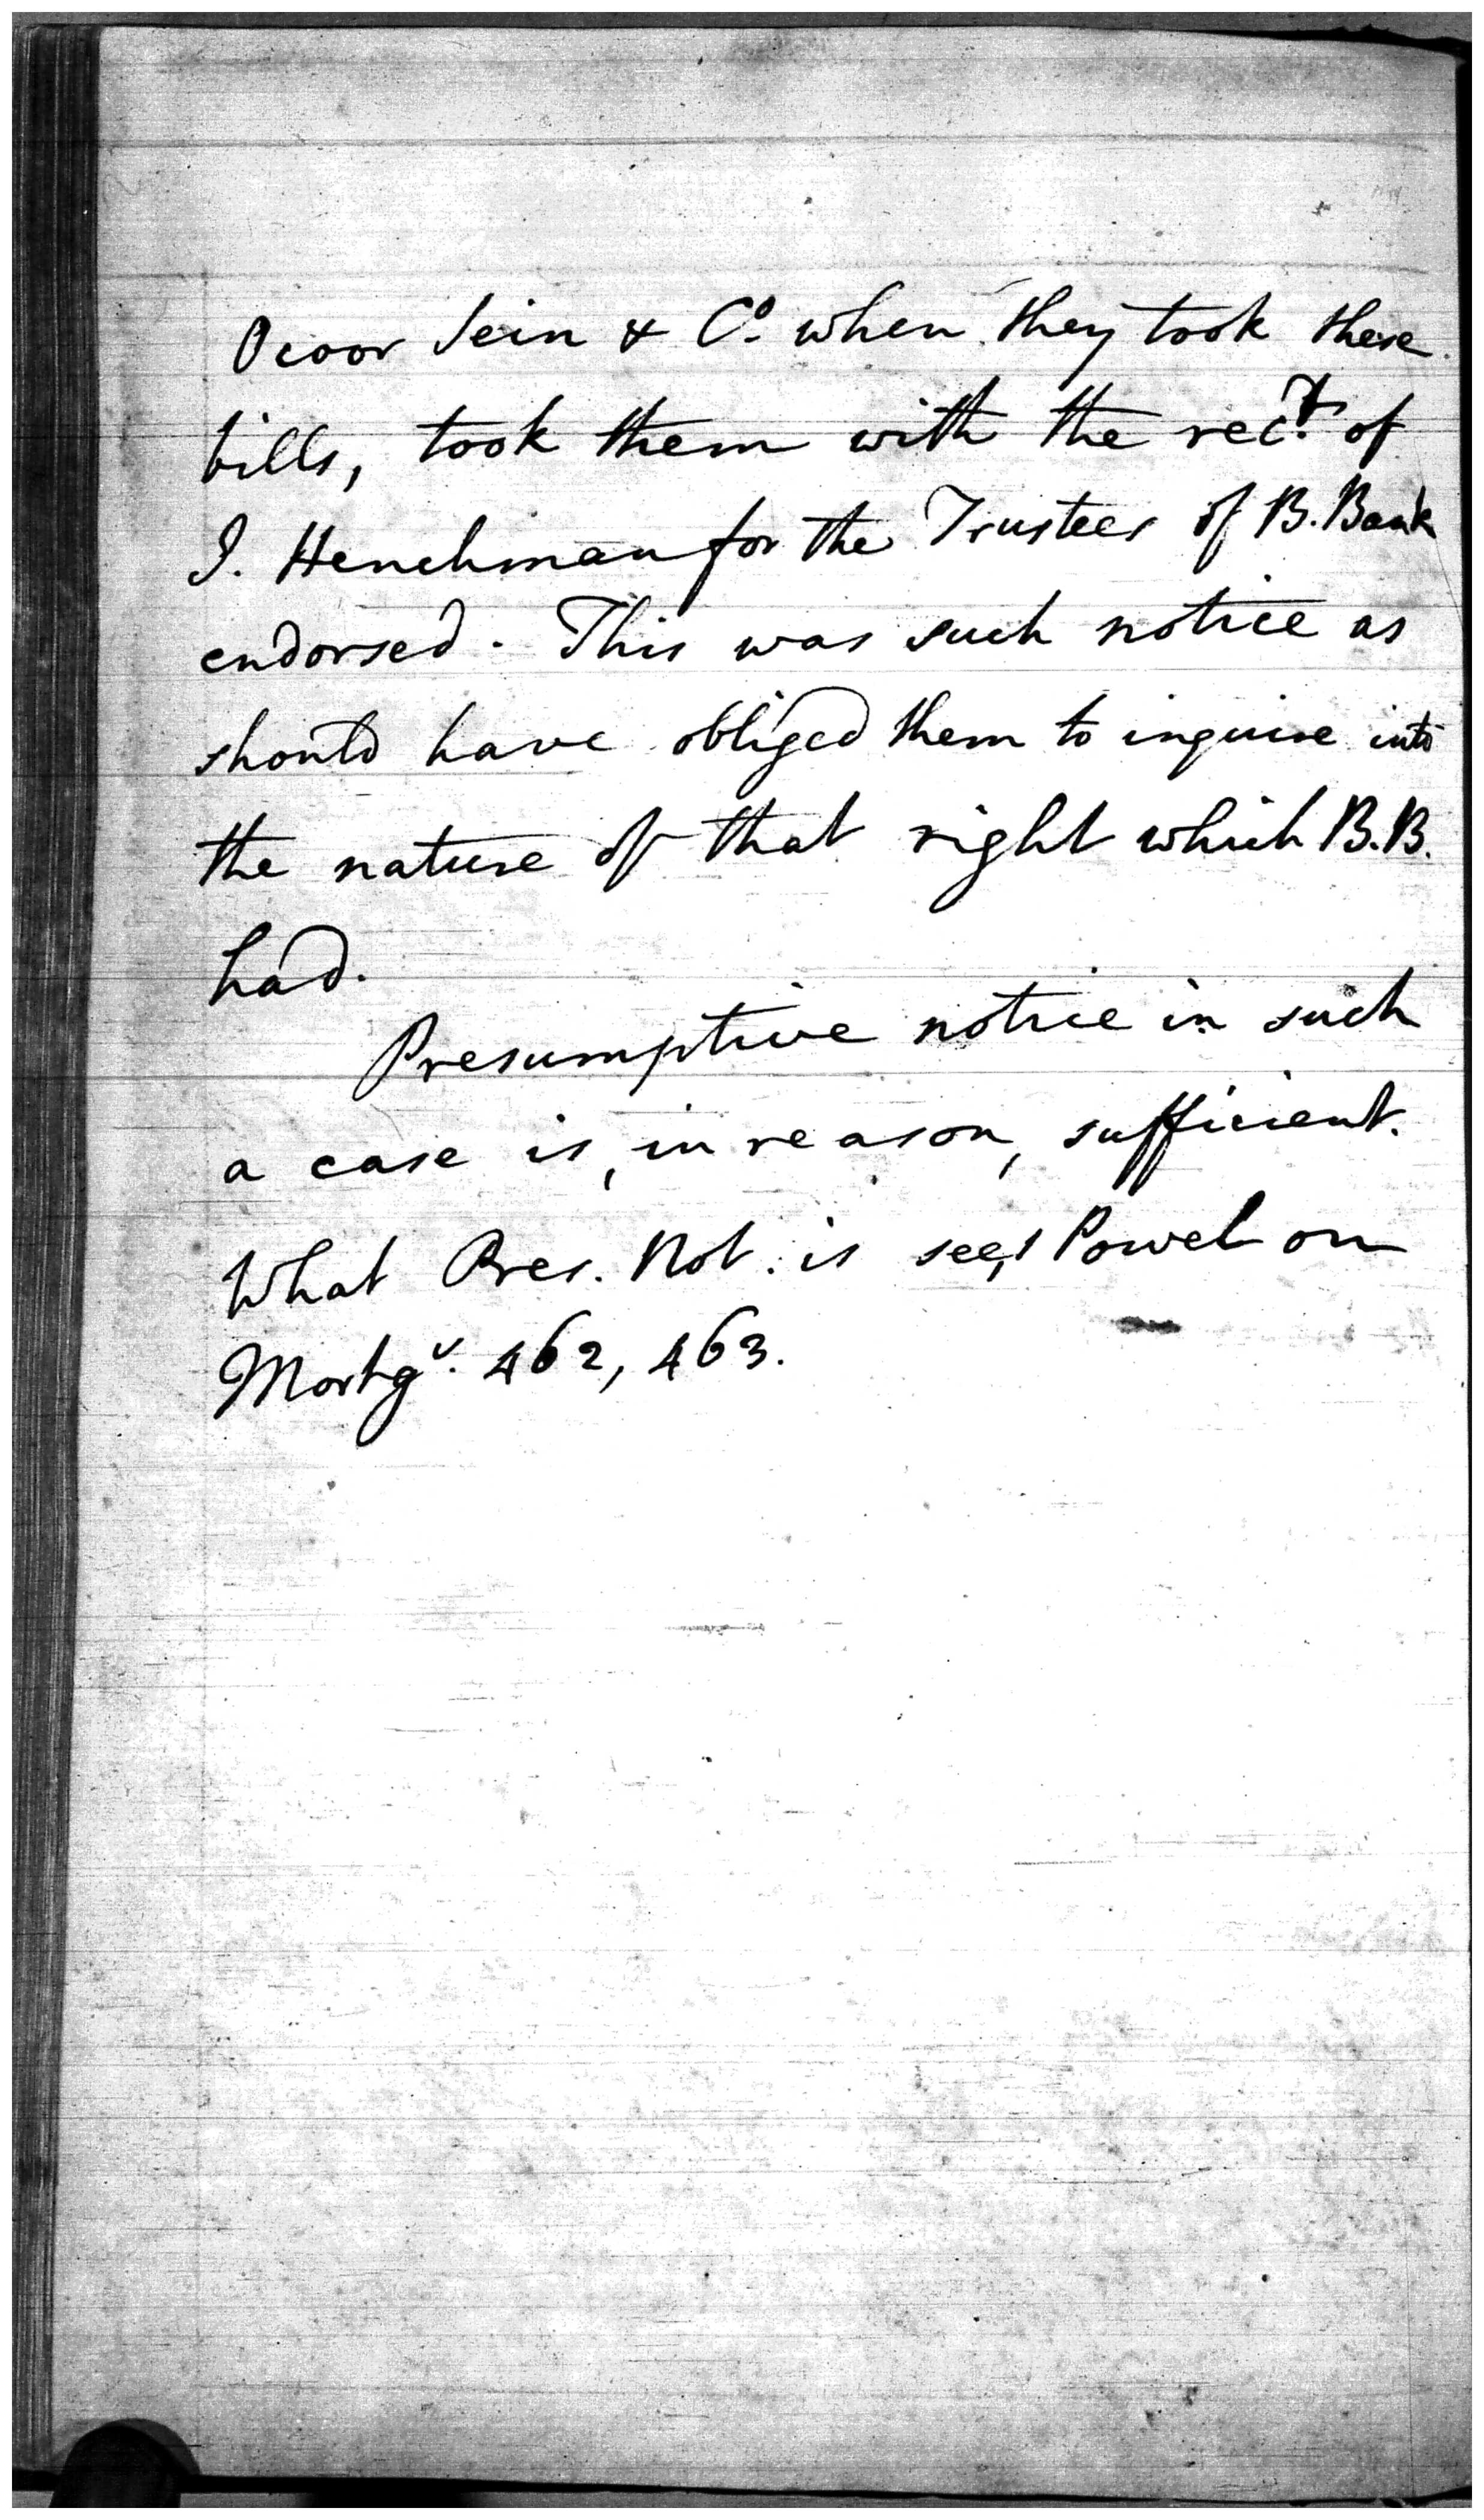 Ocoor Sein & Co. when they took these
bills, took them with the rect. of
J. Henchman for the Trustees of B. Bank
endorsed. This was such notice as
should have obliged them to inquire into
the nature of that right which B.B.
had.
Presumptive notice in such
a case is, in reason, sufficient.
What Pres. Not. is see, Powel on
Mortgs. 462, 463.